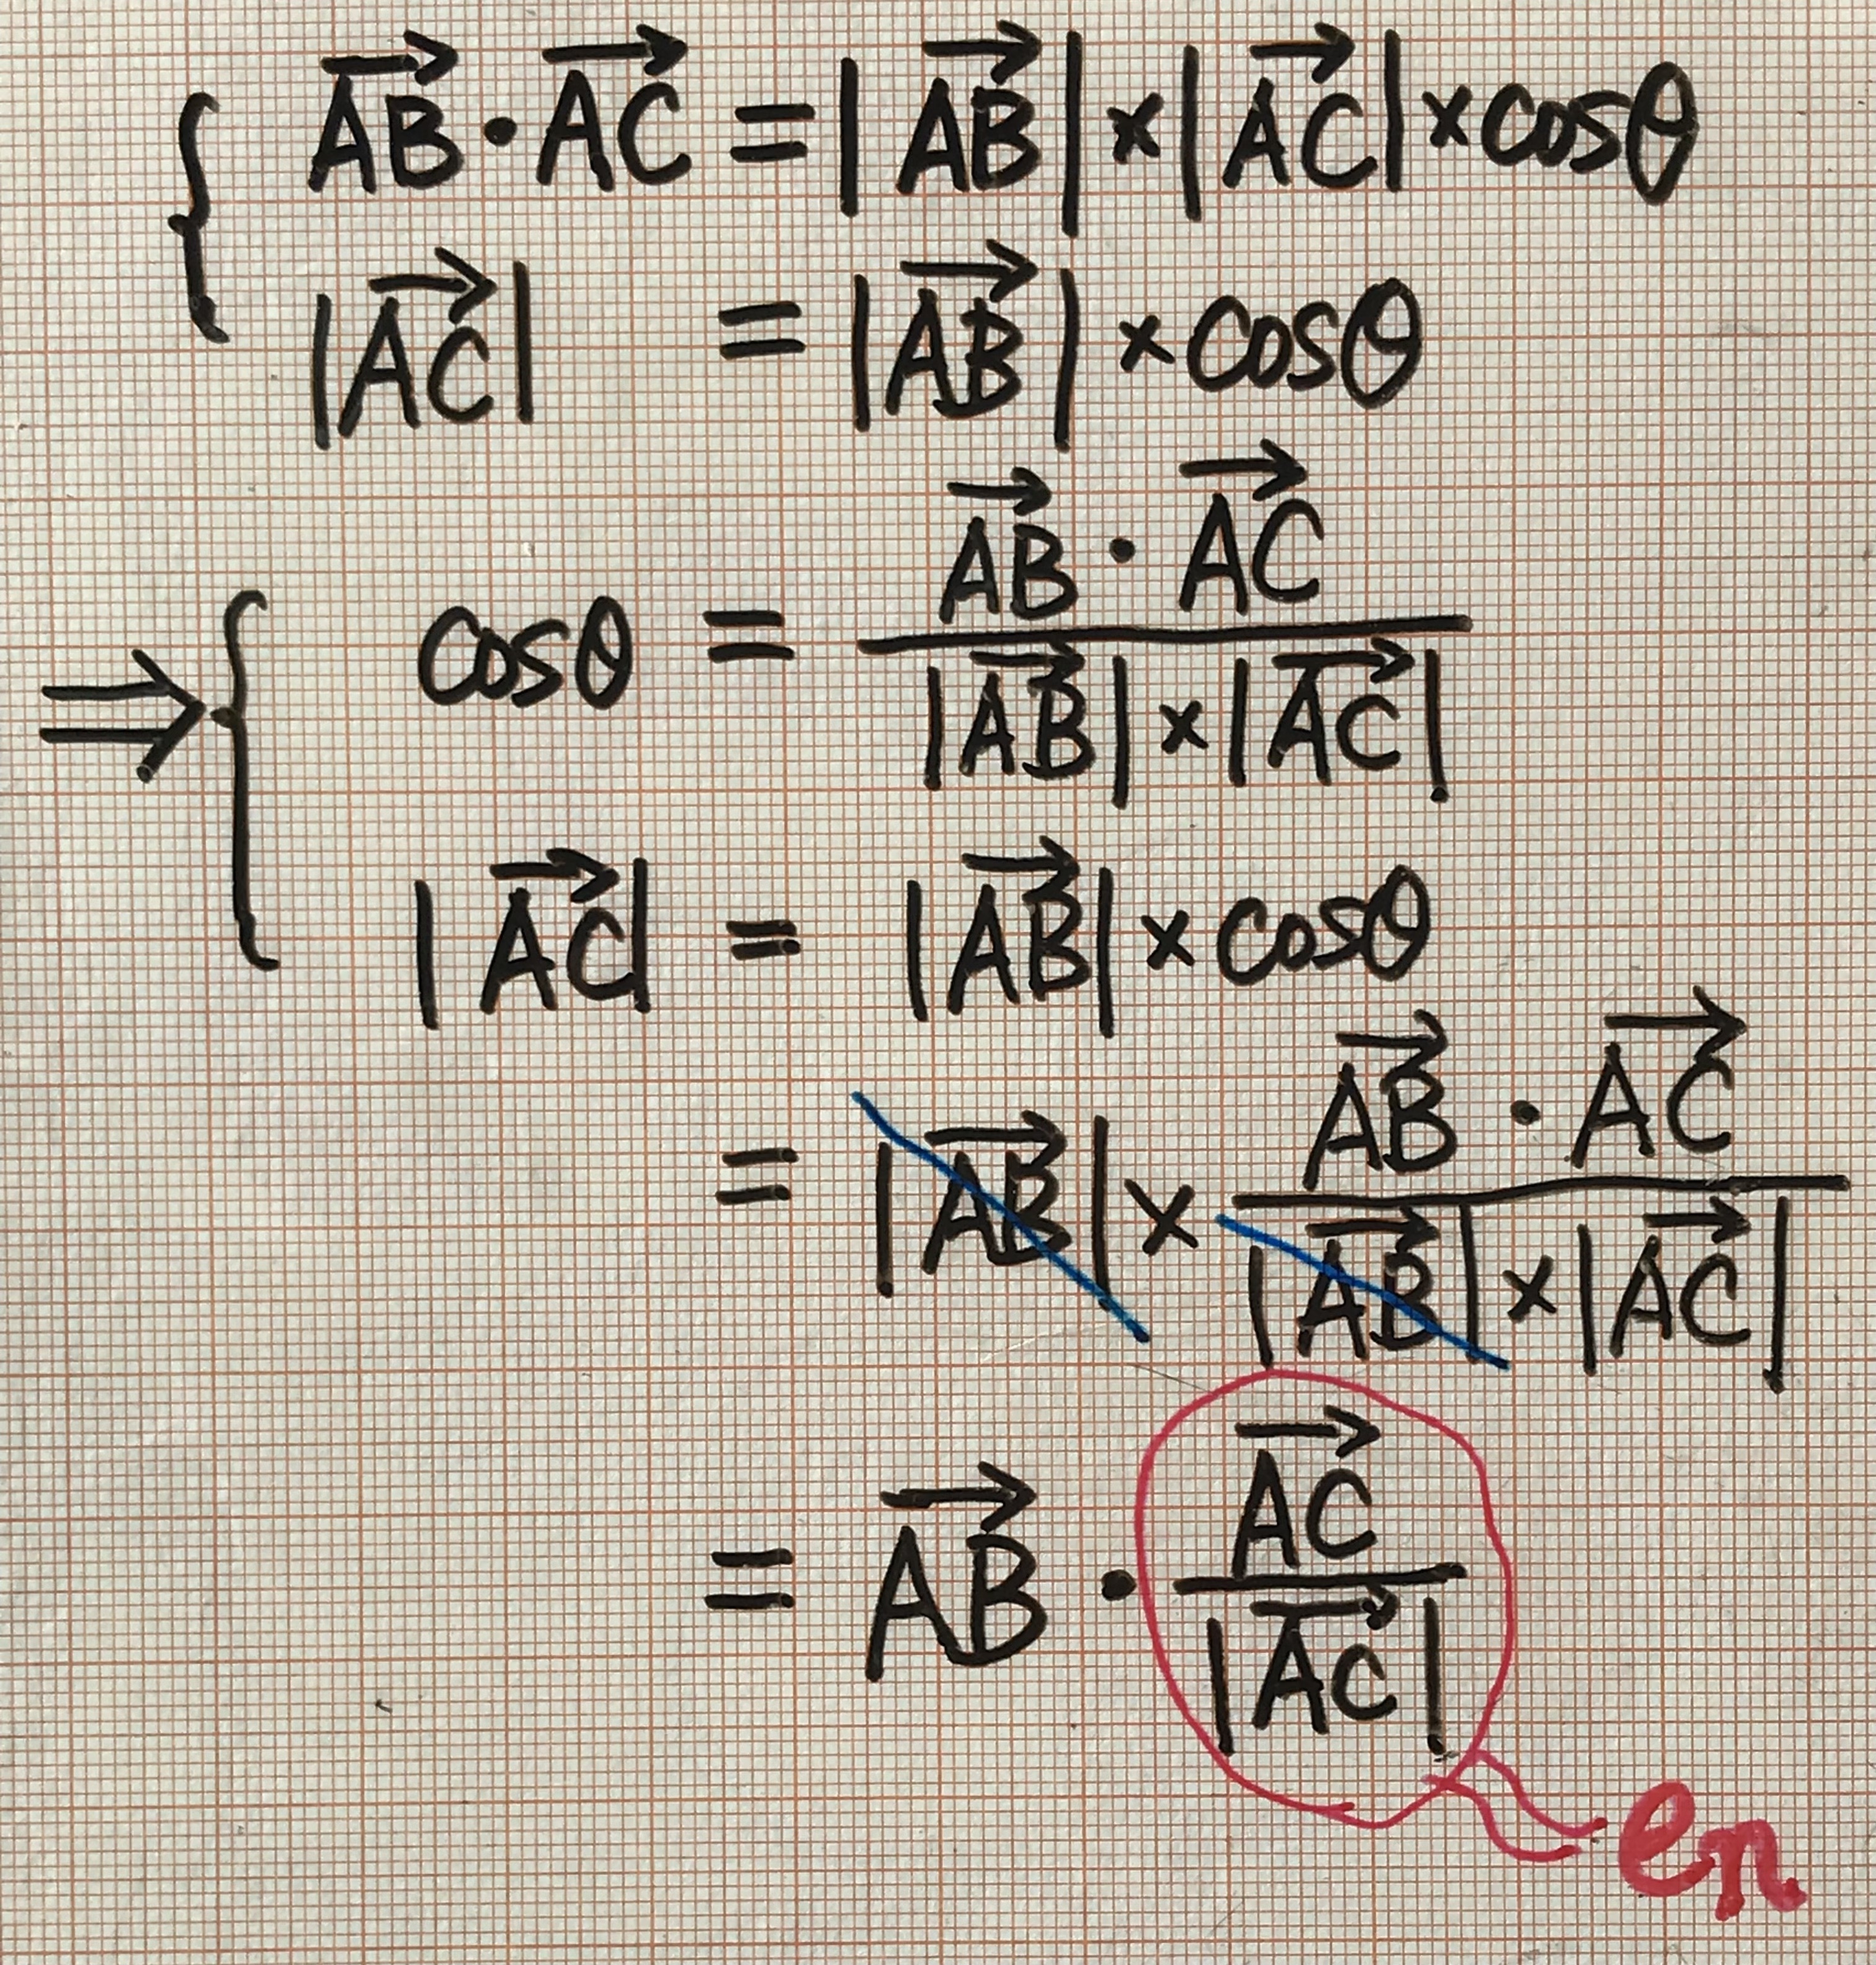 { $\overrightarrow{AB} \cdot \overrightarrow{AC} = |\overrightarrow{AB}| \times |\overrightarrow{AC}| \times \cos\theta$
$|\overrightarrow{AC}| = |\overrightarrow{AB}| \times \cos\theta$
⇒ { $\cos\theta = \frac{\overrightarrow{AB} \cdot \overrightarrow{AC}}{|\overrightarrow{AB}| \times |\overrightarrow{AC}|}$
$|\overrightarrow{AC}| = |\overrightarrow{AB}| \times \cos\theta$
$= |\overrightarrow{AB}| \times \frac{\overrightarrow{AB} \cdot \overrightarrow{AC}}{|\overrightarrow{AB}| \times |\overrightarrow{AC}|}$
$= \overrightarrow{AB} \cdot \frac{\overrightarrow{AC}}{|\overrightarrow{AC}|}$
en